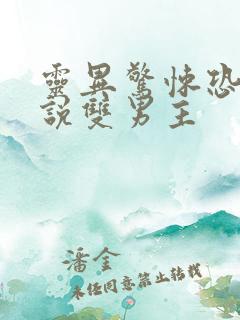 靈異驚悚恐
說雙男主
潘金
未经同意禁止转载